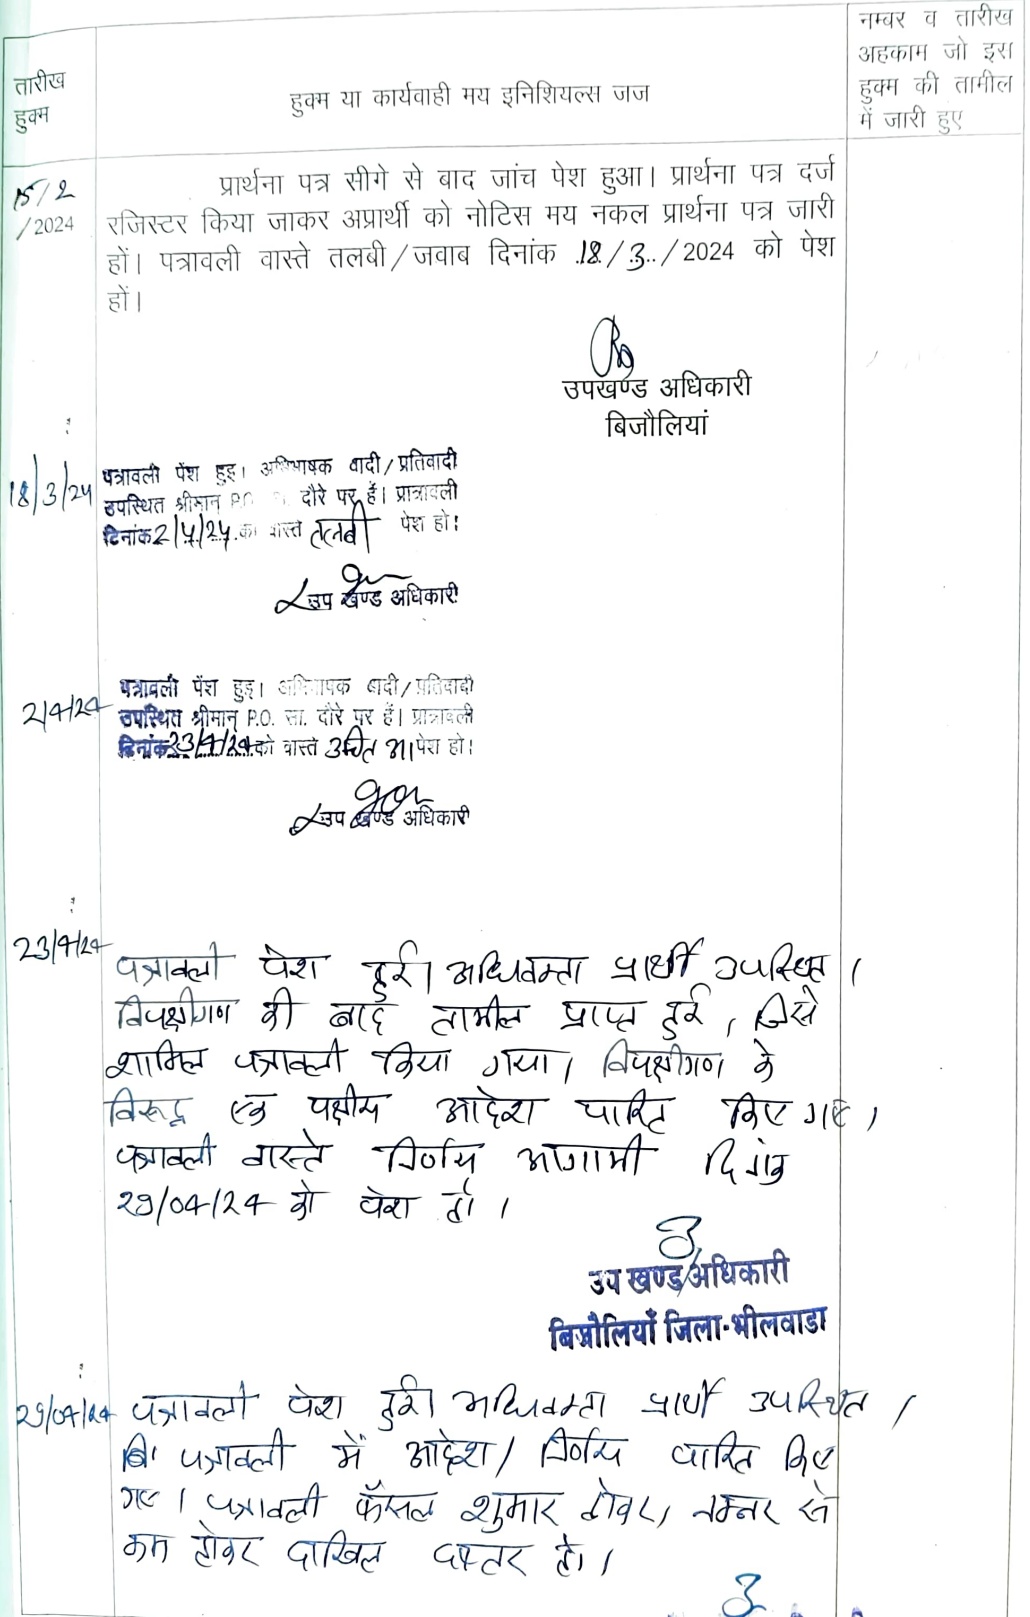 तारीख
हुक्म
हुक्म या कार्यवाही मय इनिशियल्स जज
नम्बर व तारीख
अहकाम जो इस
हुक्म की तामील
में जारी हुए
15/2
/2024
प्रार्थना पत्र सीगे से बाद जांच पेश हुआ। प्रार्थना पत्र दर्ज
रजिस्टर किया जाकर अप्रार्थी को नोटिस मय नकल प्रार्थना पत्र जारी
हों। पत्रावली वास्ते तलबी/जवाब दिनांक 18/3/2024 को पेश
हों।
उपखण्ड अधिकारी
बिजौलियां
18/3/24
पत्रावली पेंश हुइ। अभिभाषक वादी/प्रतिवादी
उपस्थित श्रीमान् P.O. दौरे पर हैं। प्रात्रावली
दिनांक 2/4/24 का वास्ते तलबी पेश हो।
उप खण्ड अधिकारी
2/4/24
पत्रावली पेंश हुइ। अभिभाषक वादी/प्रतिवादी
उपस्थित श्रीमान् P.O. सा. दौरे पर हैं। प्रात्रावली
दिनांक 23/4/24 को वास्ते उचित आ। पेश हो।
उप खण्ड अधिकारी
23/4/24
पत्रावली पेश हुई। अधिवक्ता प्रार्थी उपस्थित।
विपक्षीगण की बाद तामील प्राप्त हुई, जिसे
शामिल पत्रावली किया गया। विपक्षीगण के
विरूद्ध एक पक्षीय आदेश पारित किए गए।
पत्रावली वास्ते निर्णय आगामी दिनांक
29/04/24 को पेश हो।
उप खण्ड अधिकारी
बिजौलियाँ जिला-भीलवाडा
29/04/24
पत्रावली पेश हुई। अधिवक्ता प्रार्थी उपस्थित।
पत्रावली में आदेश/निर्णय पारित किए
गए। पत्रावली फैसल शुमार होकर, नम्बर से
कम होकर दाखिल दफ्तर हो।